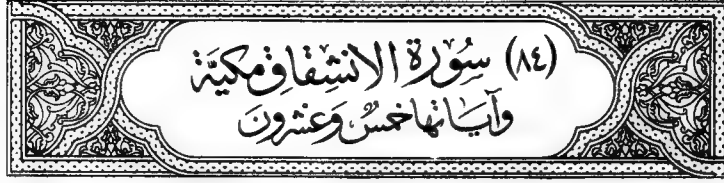 (٨٤) سُورَة الانشِقاقِ مكيَّة
وَآيَاتهَا خمسٌ وَعشرُونَ